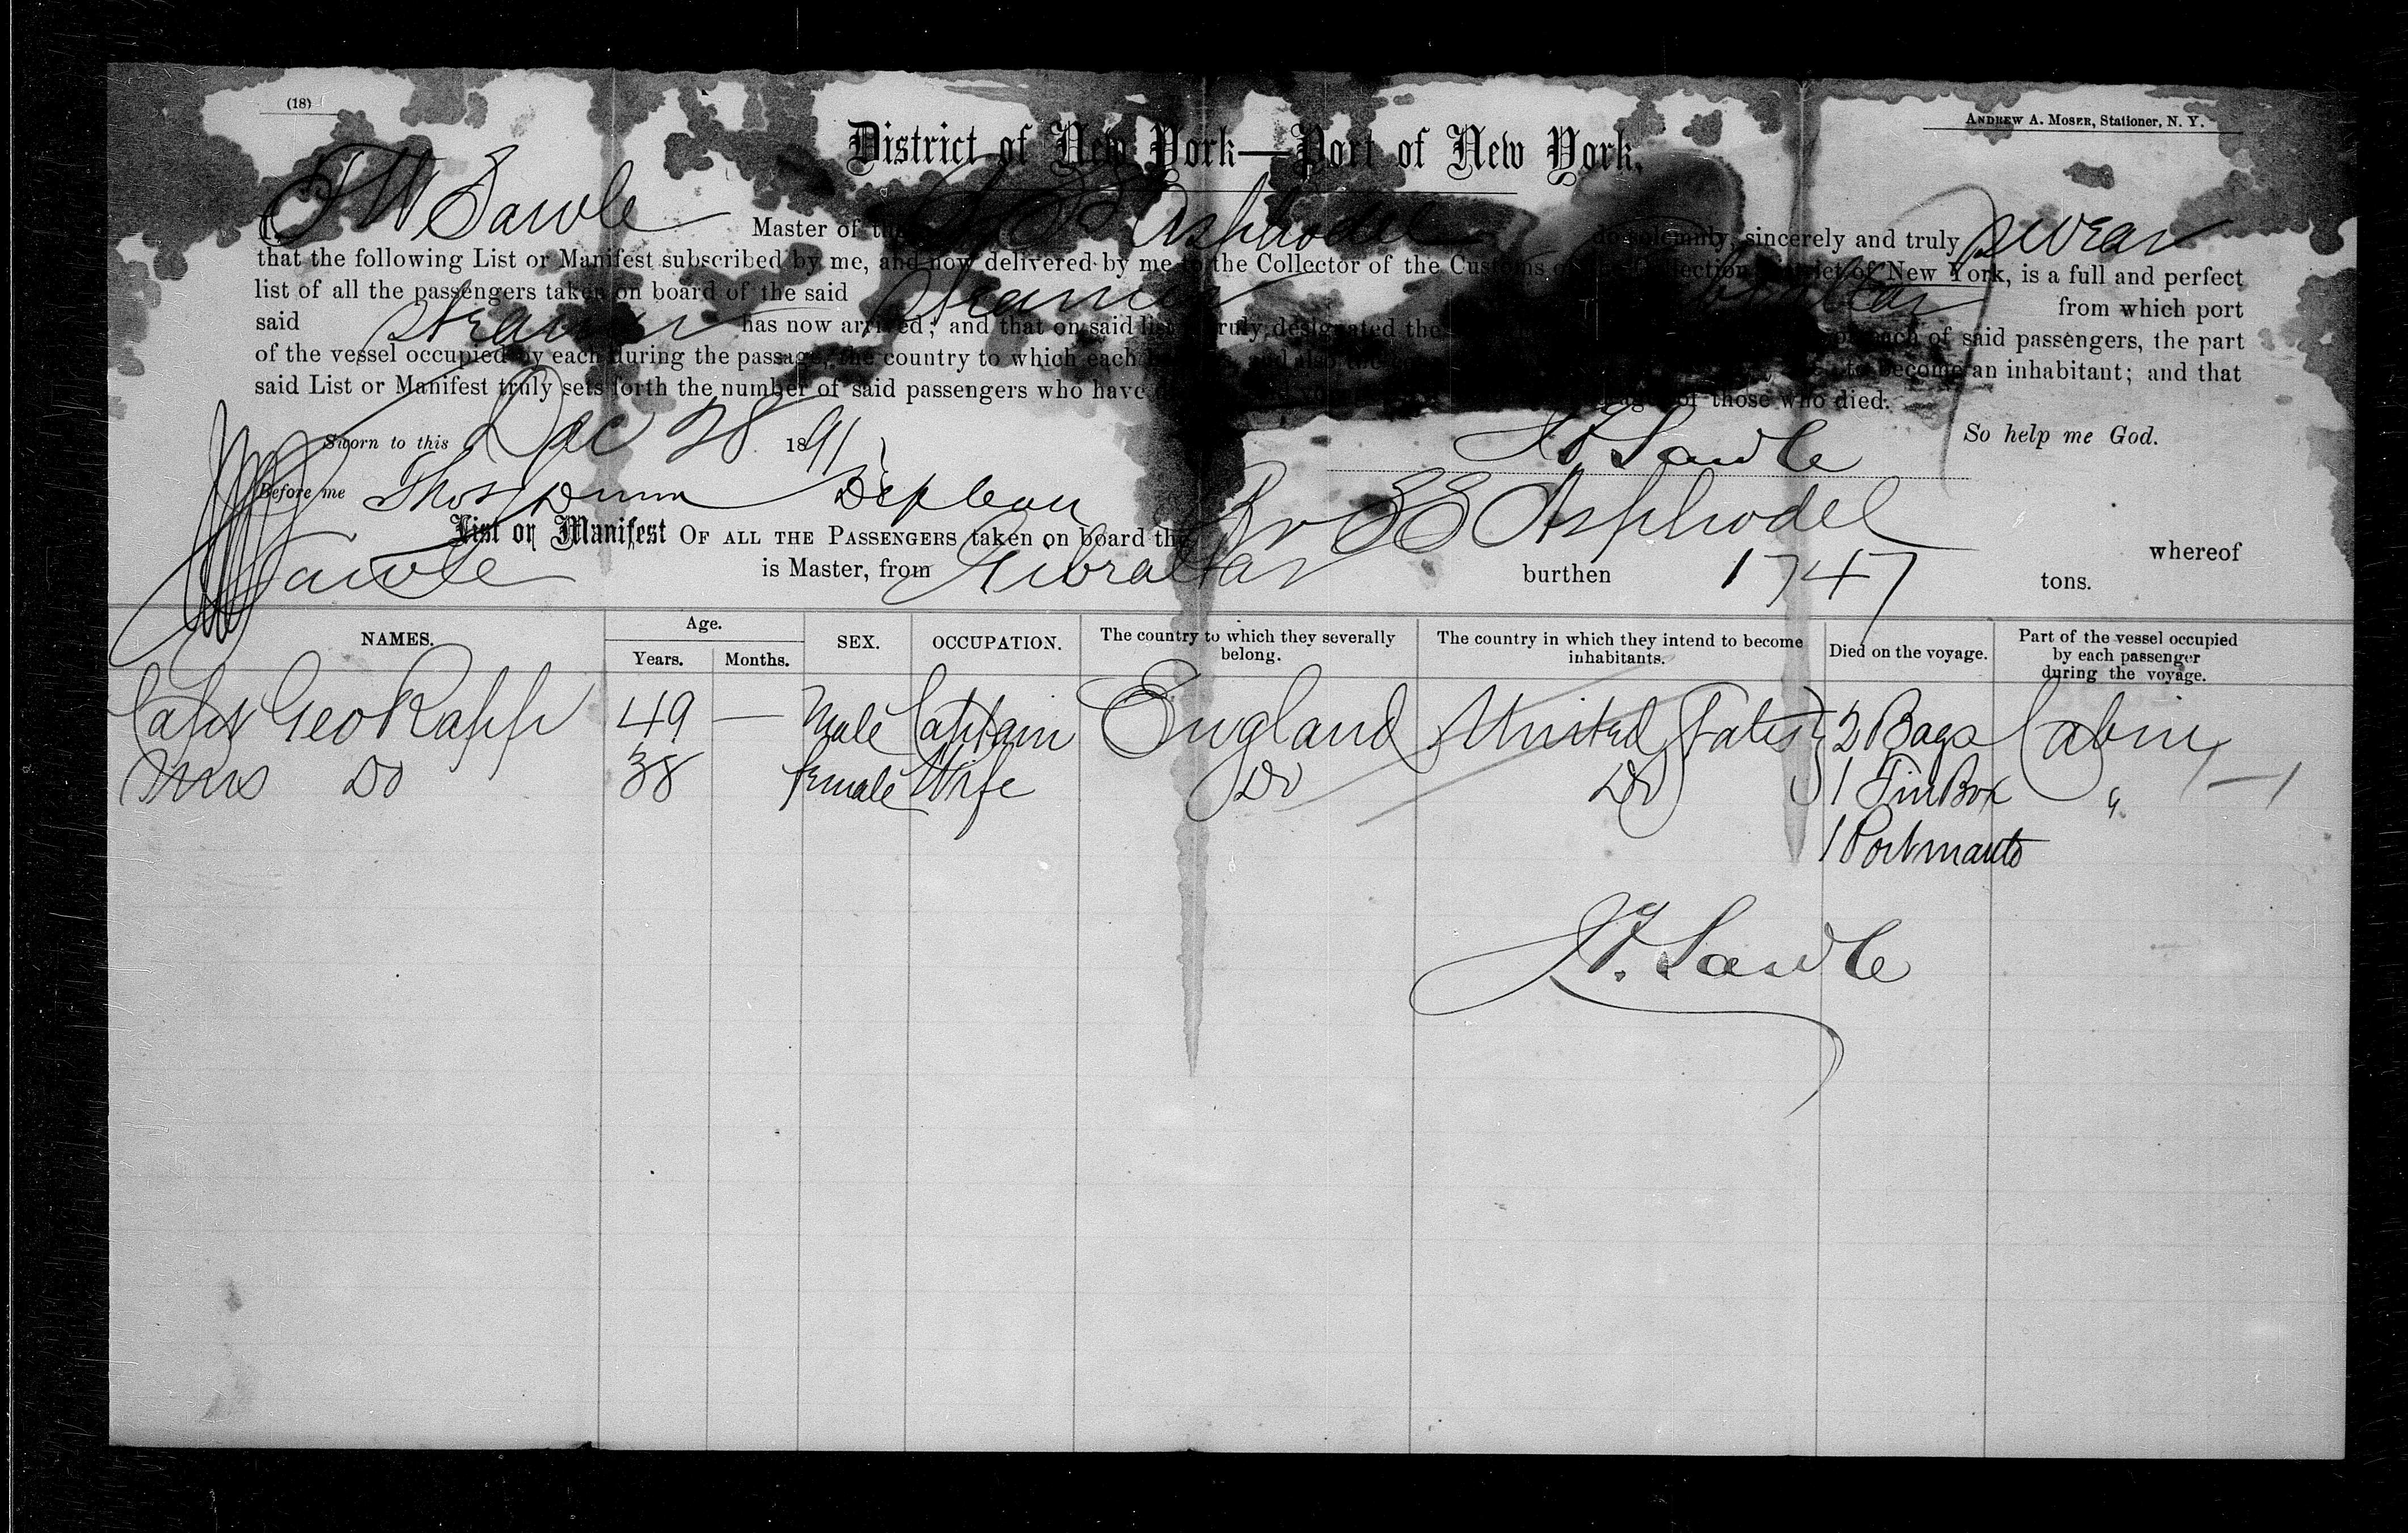 (18)
ANDREW A. MOSER, Stationer, N. Y.
District of New York—Port of New York,
I, T W Sawle Master of the Asphodel do solemnly, sincerely and truly swear
that the following List or Manifest subscribed by me, and now delivered by me to the Collector of the Customs of the Collection District of New York, is a full and perfect
list of all the passengers taken on board of the said Steamer from which port
said Steamer has now arrived; and that on said list is truly designated the each of said passengers, the part
of the vessel occupied by each during the passage, the country to which each and also the to become an inhabitant; and that
said List or Manifest truly sets forth the number of said passengers who have of those who died.
So help me God.
Sworn to this Dec 28 1891
Sawle
Before me Thos Dunn Dep
List or Manifest OF ALL THE PASSENGERS taken on board the Br SS Asphodel whereof
Sawle is Master, from Gibraltar burthen 1747 tons.
NAMES. Age. Years. Months. SEX. OCCUPATION. The country to which they severally belong. The country in which they intend to become inhabitants. Died on the voyage. Part of the vessel occupied by each passenger during the voyage.
Capt Geo Rapp 49 — Male Captain England United States 2 Bags Cabin
Mrs Do 38 female Wife Do Do 1 Tin Box "
1 Portmanto
Sawle